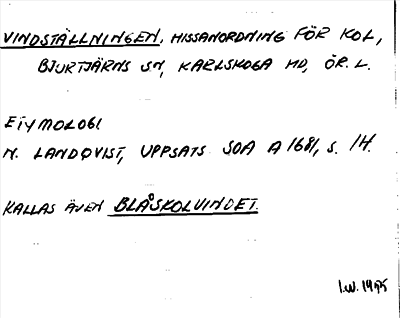 VINDSTÄLLNINGEN, HISSANORDNING FÖR KOL,
BJURTJÄRNS SN, KARLSKOGA HD, ÖR. L.
ETYMOLOGI
N. LANDQVIST, UPPSATS SOA A 1681, S. 14.
KALLAS ÄVEN BLÅSKOLVINDET.
I.W. 1995